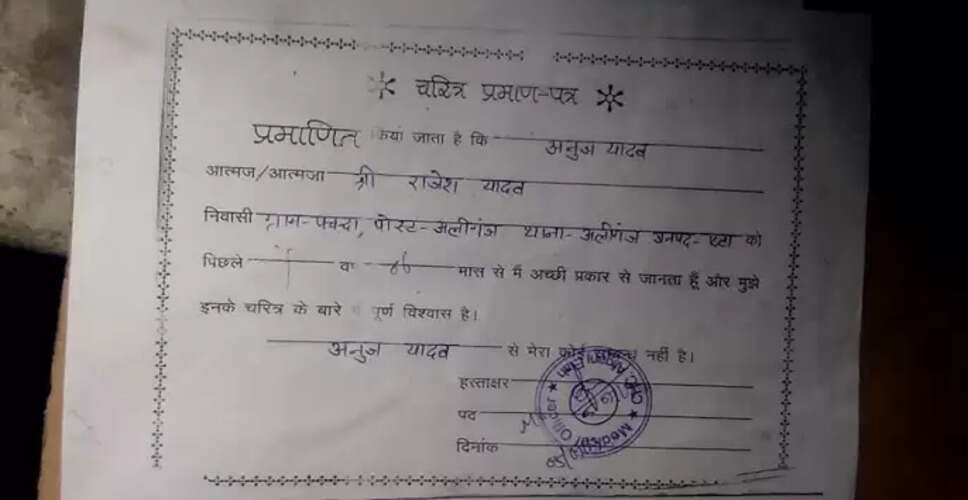 चरित्र प्रमाण-पत्र
प्रमाणित किया जाता है कि अनुज यादव
आत्मज/आत्मजा श्री राजेश यादव
निवासी ग्राम- पोस्ट-अलीगंज थाना-अलीगंज जनपद-एटा को
पिछले व 06 मास से मैं अच्छी प्रकार से जानता हूँ और मुझे
इनके चरित्र के बारे पूर्ण विश्वास है।
अनुज यादव से मेरा कोई सम्बन्ध नहीं है।
हस्ताक्षर
पद
दिनांक
Medical Officer